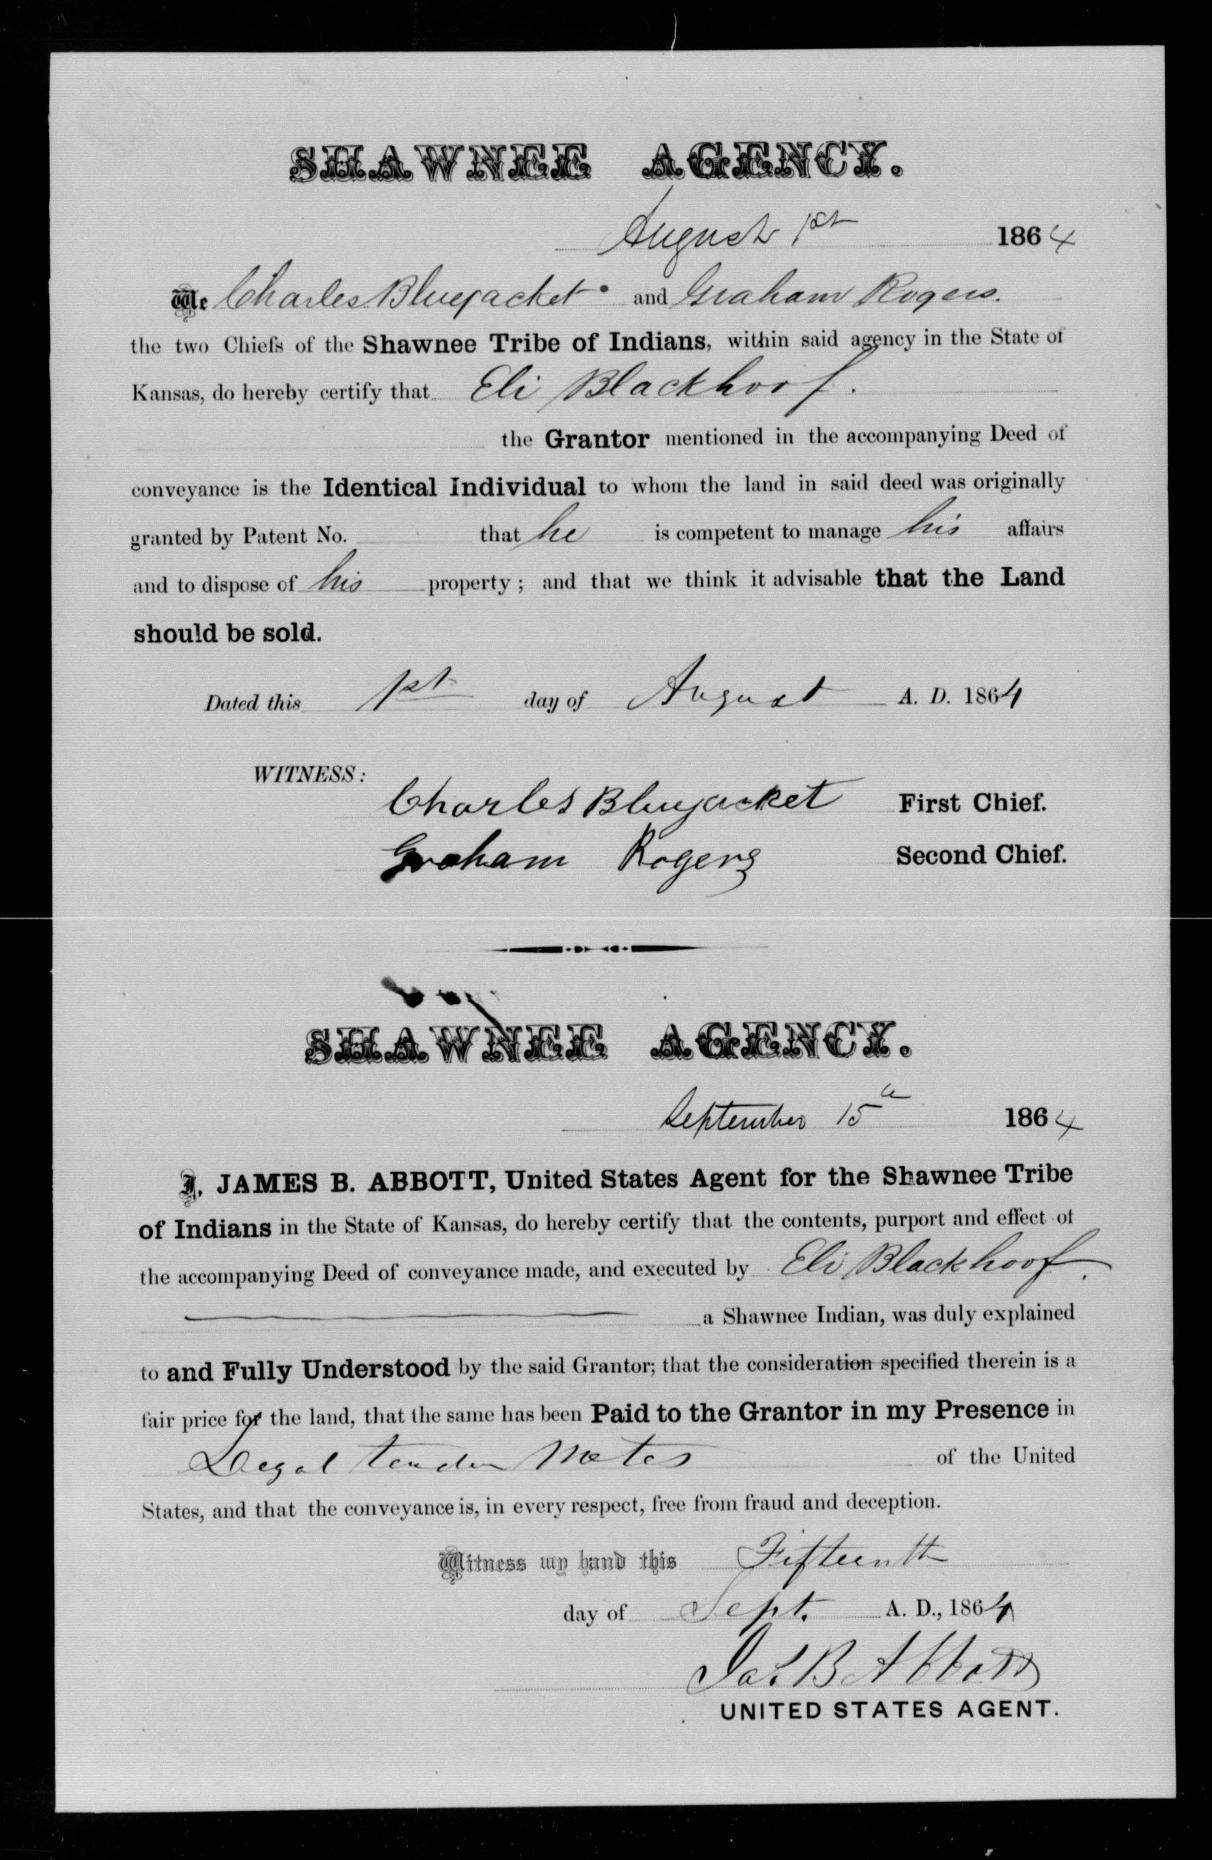 SHAWNEE AGENCY.
August 1st 1864
We Charles Bluejacket and Graham Rogers.
the two Chiefs of the Shawnee Tribe of Indians, within said agency in the State of
Kansas, do hereby certify that Eli Blackhoof.
the Grantor mentioned in the accompanying Deed of
conveyance is the Identical Individual to whom the land in said deed was originally
granted by Patent No. that he is competent to manage his affairs
and to dispose of his property; and that we think it advisable that the Land
should be sold.
Dated this 1st day of August A. D. 1864
WITNESS:
Charles Bluejacket First Chief.
Graham Rogers Second Chief.
SHAWNEE AGENCY.
September 15th 1864
I, JAMES B. ABBOTT, United States Agent for the Shawnee Tribe
of Indians in the State of Kansas, do hereby certify that the contents, purport and effect of
the accompanying Deed of conveyance made, and executed by Eli Blackhoof.
a Shawnee Indian, was duly explained
to and Fully Understood by the said Grantor; that the consideration specified therein is a
fair price for the land, that the same has been Paid to the Grantor in my Presence in
Legal tender Notes of the United
States, and that the conveyance is, in every respect, free from fraud and deception.
Witness my hand this Fifteenth
day of Sept. A. D., 1864
Jas B Abbott
UNITED STATES AGENT.